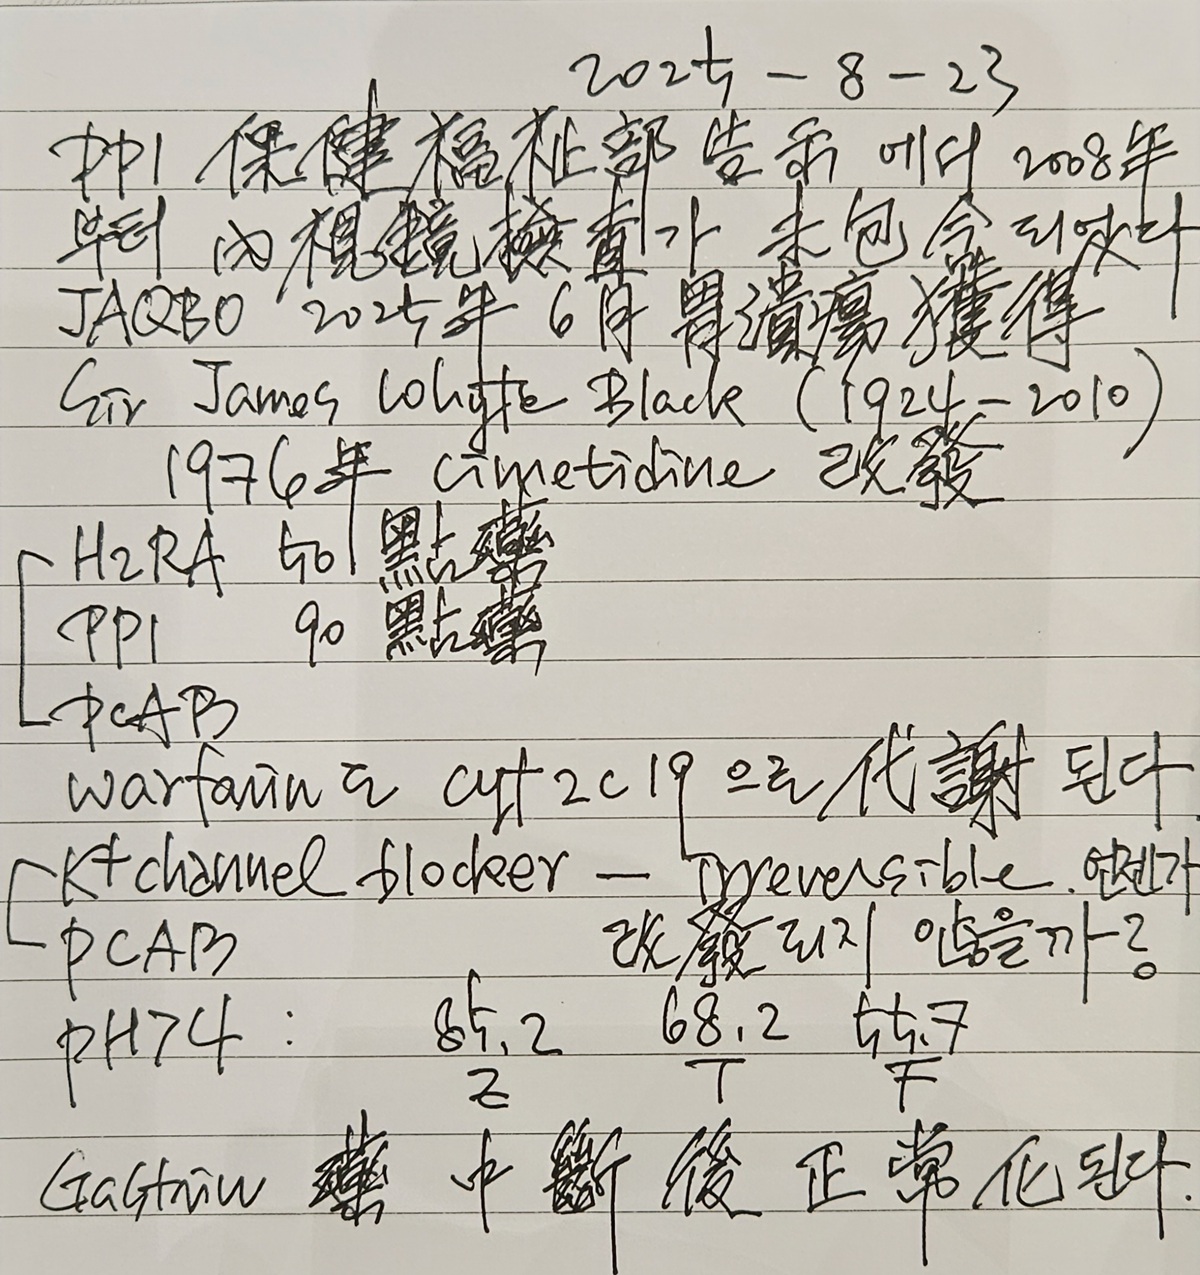 2025-8-23
PPI 保健福祉部 告示 에서 2008年
부터 內視鏡檢査가 未包含 되었다
JAQBO 2025年 6月 胃潰瘍 獲得
Sir James Whyte Black (1924-2010)
1976年 cimetidine 改發
H2RA 50 點藥
PPI 90 點藥
PCAB
warfarin도 cyp2c19으로 代謝 된다.
K+ channel blocker - irreversible. 언젠가
PCAB 改發되지 않을까?
pH>4 : 85.2 68.2 55.7
Z T F
Gastrin 藥 中斷後 正常化된다.